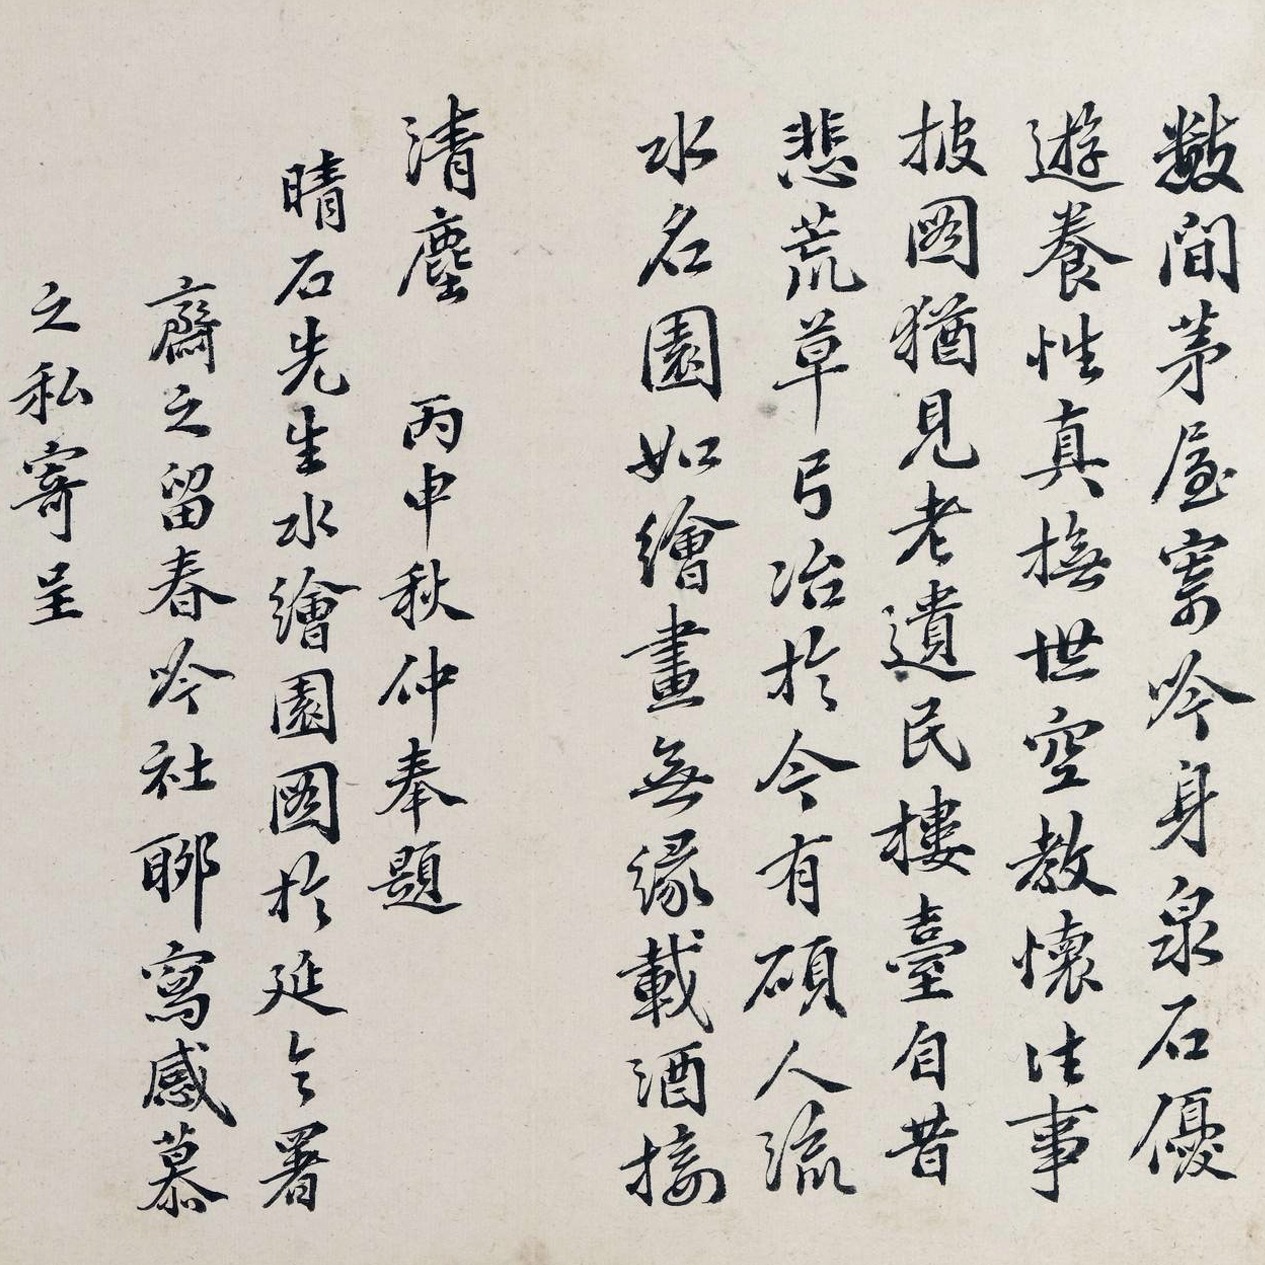 數間茅屋寄吟身泉石優
遊養性真撫世空教懷往事
披圖猶見老遺民樓臺自昔
悲荒草弓冶於今有碩人流
水名園如繪畫無緣載酒接
清塵 丙申秋仲奉題
晴石先生水繪園圖於延令署
齋之留春吟社聊寫感慕
之私寄呈